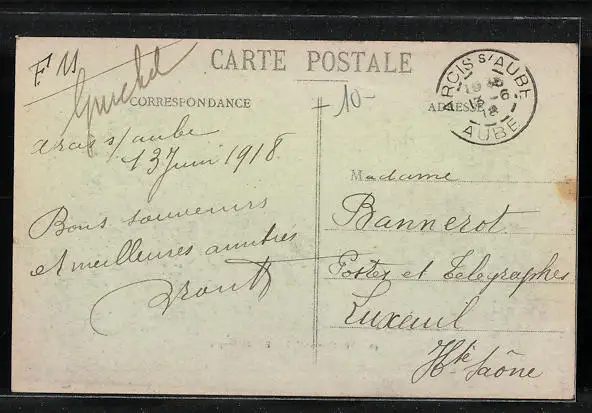 F 11
Guichet
CARTE POSTALE
CORRESPONDANCE
10-
ADRESSE
ARCIS S/ AUBE
13 - 6
18
AUBE
Arcis s/ aube
13 Juin 1918
Bons souvenirs
et meilleures amitiés
Madame
Bannerot
Postes et Télégraphes
Luxeuil
Hte Saône